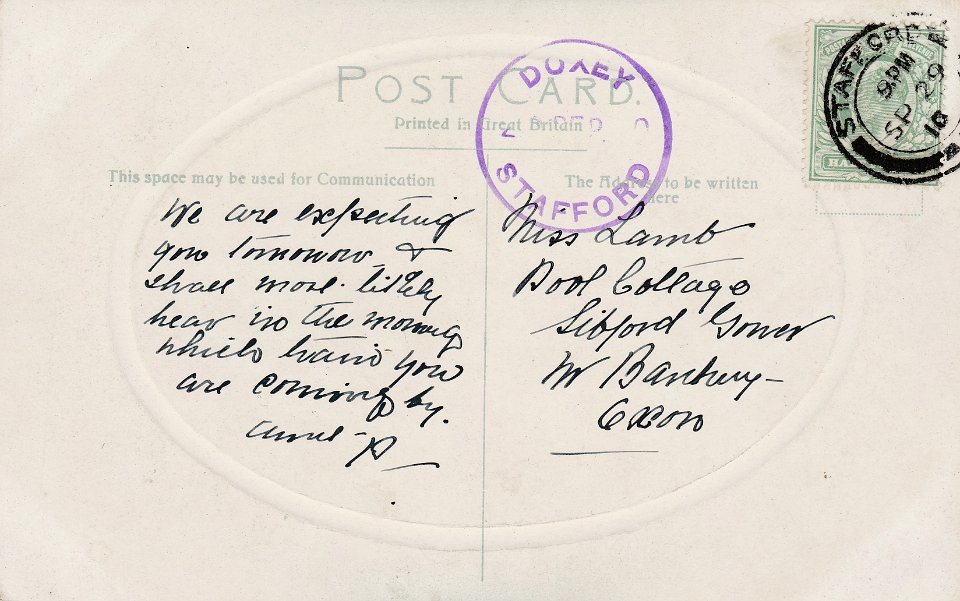 POST CARD.
Printed in Great Britain
This space may be used for Communication
The Address to be written
Here
DOXEY
STAFFORD
STAFFORD
9PM
SP 29
10
We are expecting
you tomorrow &
shall most likely
hear in the morning
which train you
are coming by.
Miss Lamb
Pool Cottage
Sibford Gower
Nr Banbury
Oxon